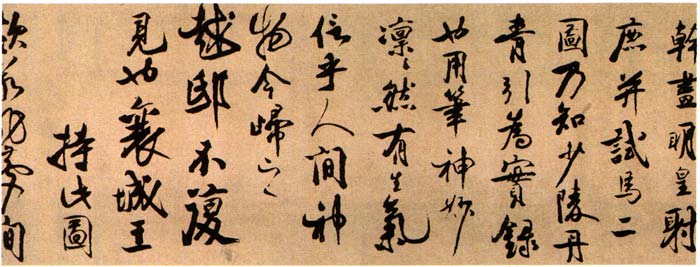 幹畫明皇射
鹿并試馬二
圖乃知少陵丹
青引為實錄
也用筆神妙
凜凜然有生氣
信乎人間神
物今歸之
越邸不復
見也襄城王
持此圖